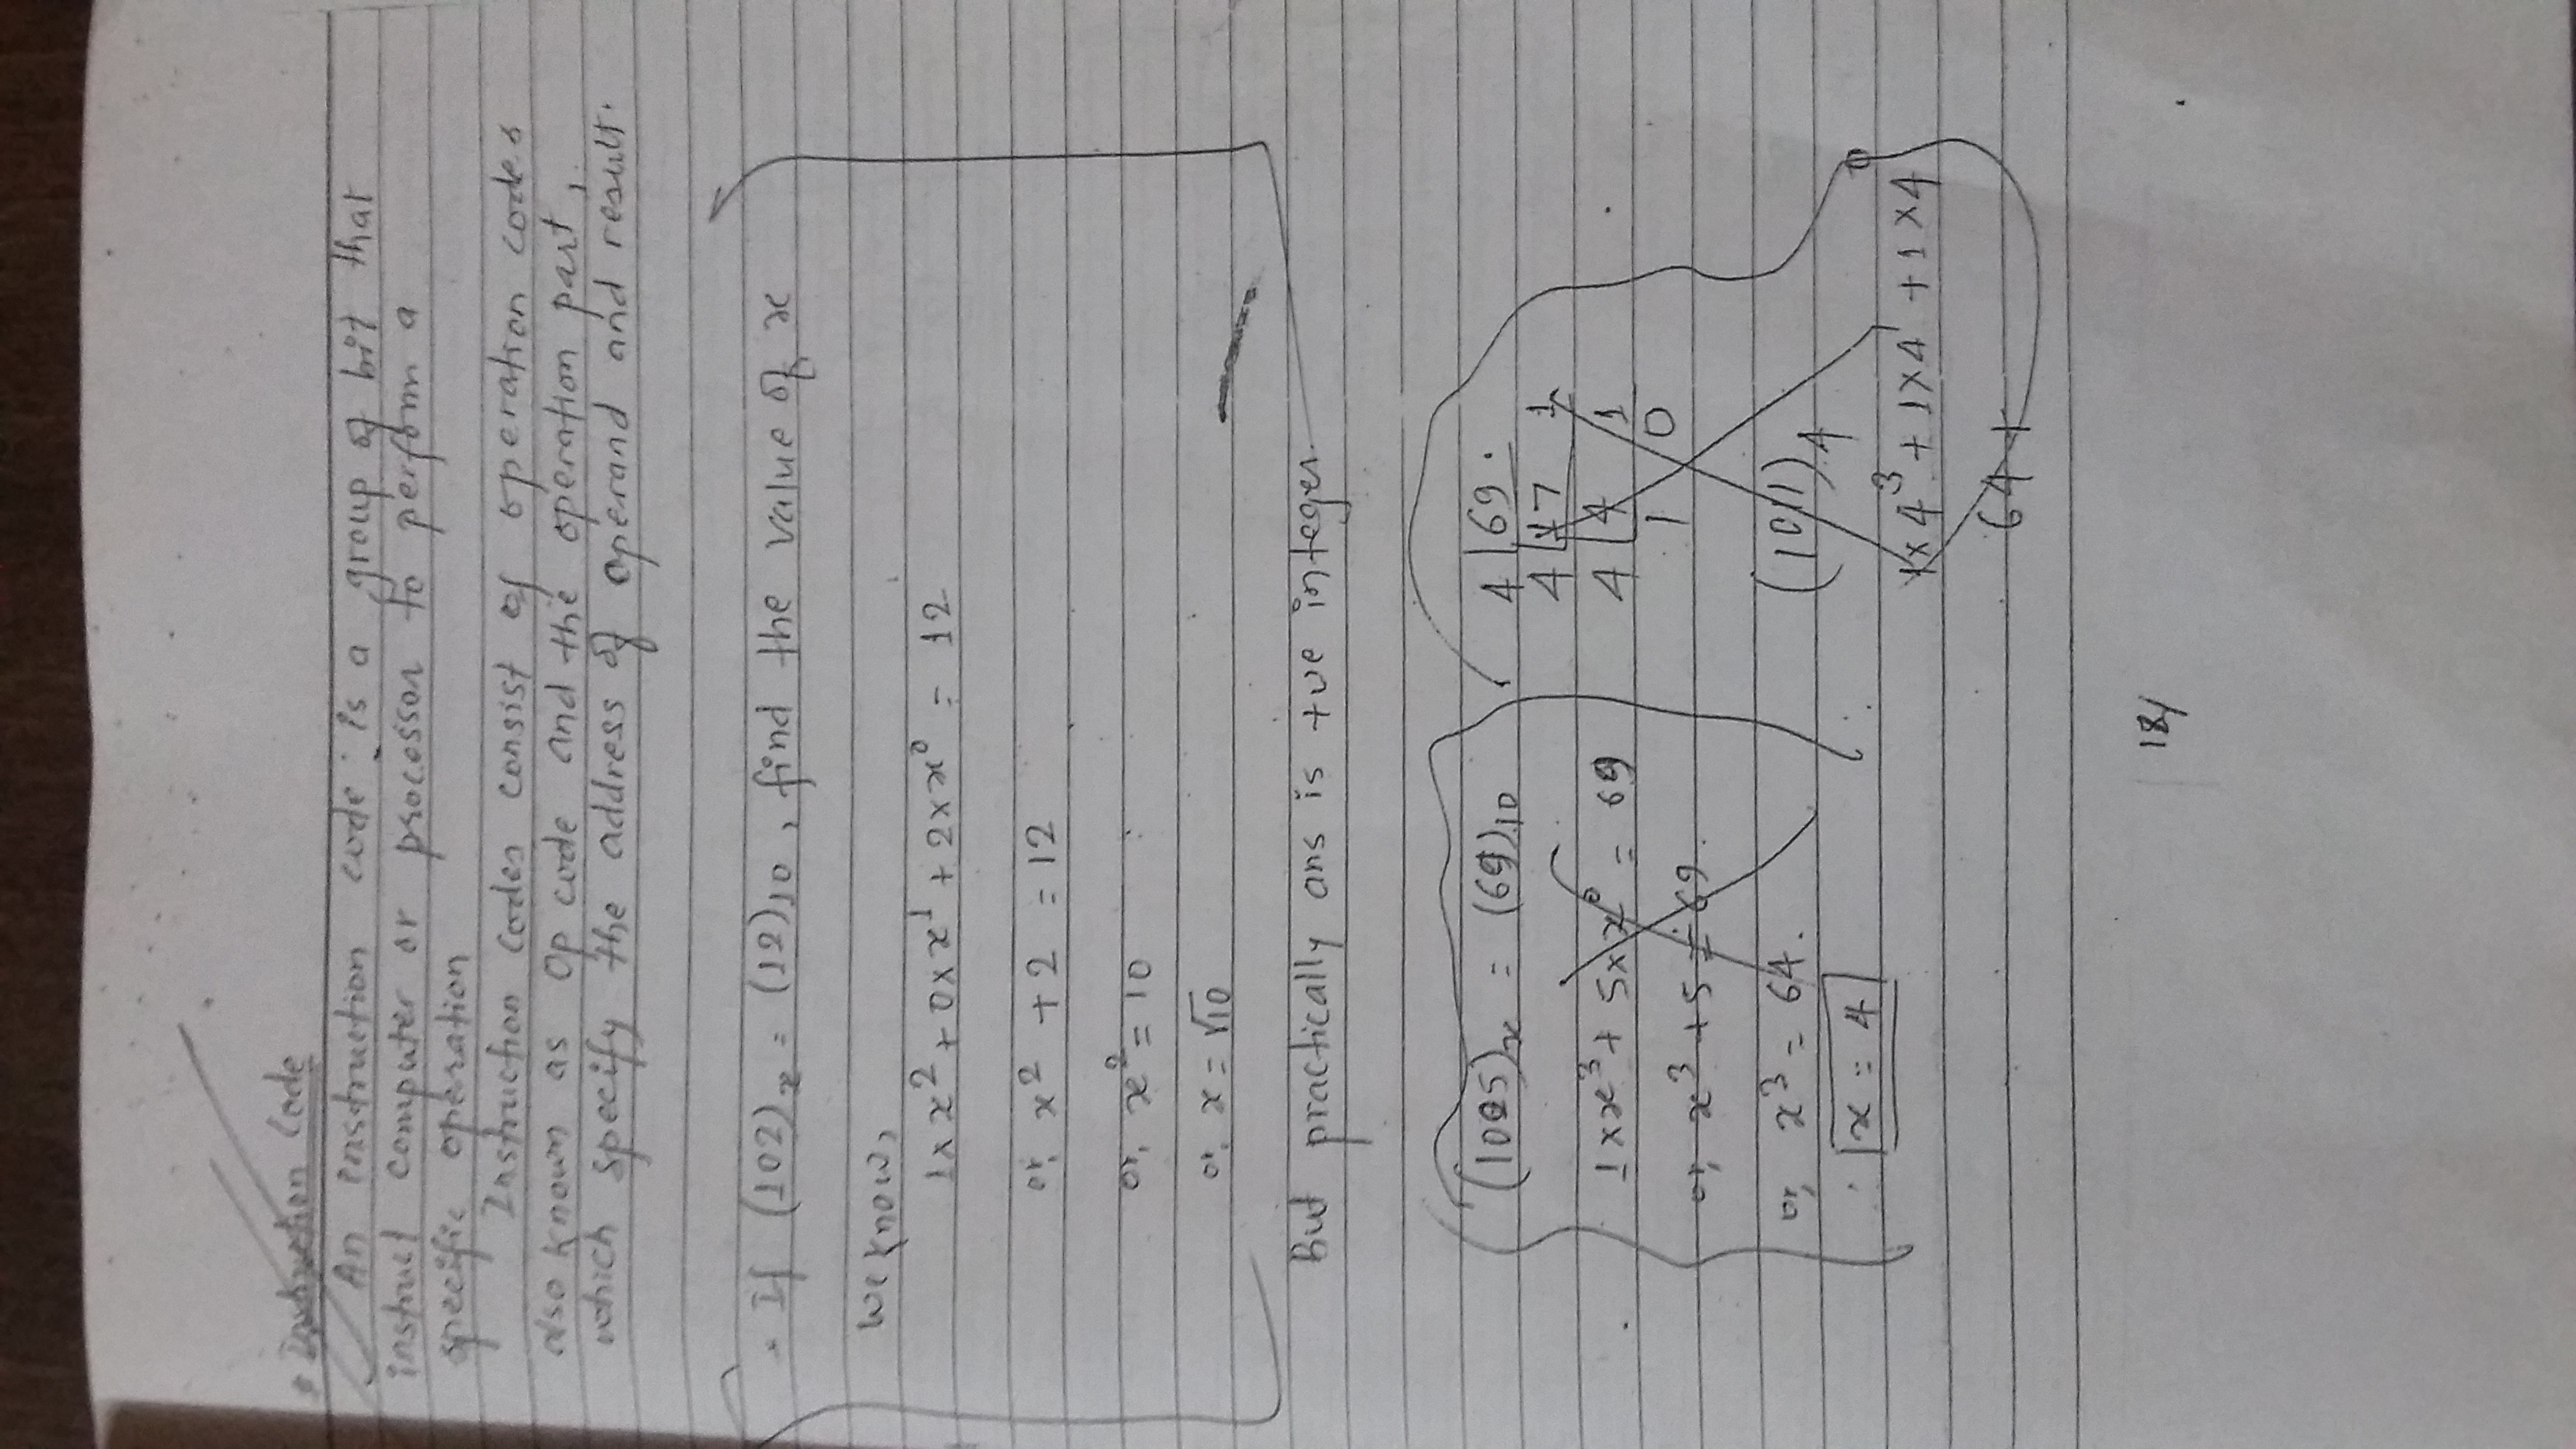 • Instruction Code
An instruction code: is a group of bit that
instruct computer or processor to perform a
specific operation
Instruction codes consist of operation codes
also known as Op code and the operation part,
which specify the address of operand and result.
• If (102)x = (12)10, find the value of x
We know,
1 × x² + 0 × x¹ + 2 × x⁰ = 12
or, x² + 2 = 12
or, x² = 10
or, x = √10
But practically ans is +ve integer.
(1005)x = (69)10
1 × x³ + 5 × x⁰ = 69
or, x³ + 5 = 69.
or, x³ = 64.
∴ x = 4
4 | 69.
4 | 17 1
4 | 4 1
1 0
(1011)4
1 × 4³ + 1 × 4¹ + 1 × 4
64 +
18/